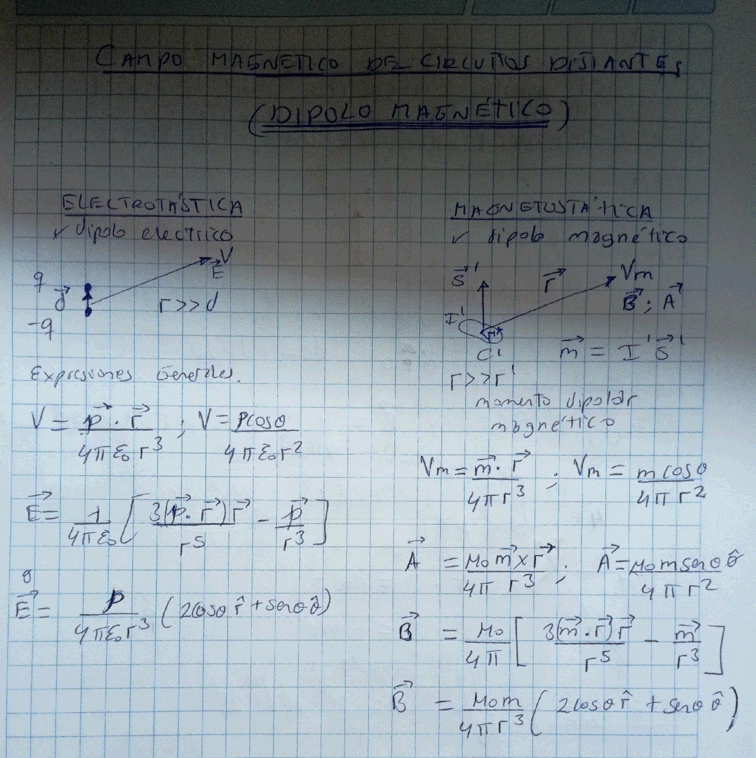 CAMPO MAGNETICO DE CIRCUITOS DISTANTES
(DIPOLO MAGNÉTICO)
ELECTROTÁSTICA
✓ dipolo electrico
q
d⃗
-q
V
E⃗
r>>d
Expresiones Generales.
V = p⃗ · r⃗ / 4πε₀ r³ ; V = p cosθ / 4πε₀ r²
E⃗ = 1/4πε₀ [ 3(p⃗ · r⃗) r⃗ / r⁵ − p⃗ / r³ ]
E⃗ = p / 4πε₀ r³ (2cosθ r̂ + senθ θ̂)
MAGNETOSTÁTICA
✓ dipolo magnético
S⃗'
r⃗
Vm
B⃗ ; A⃗
I'
C'
m⃗ = I' S⃗'
r>>r'
momento dipolar
magnético
Vm = m⃗ · r⃗ / 4π r³ ; Vm = m cosθ / 4π r²
A⃗ = μ₀ m⃗ × r⃗ / 4π r³ ; A⃗ = μ₀ m senθ θ̂ / 4π r²
B⃗ = μ₀ / 4π [ 3(m⃗ · r⃗) r⃗ / r⁵ − m⃗ / r³ ]
B⃗ = μ₀ m / 4π r³ ( 2cosθ r̂ + senθ θ̂ )